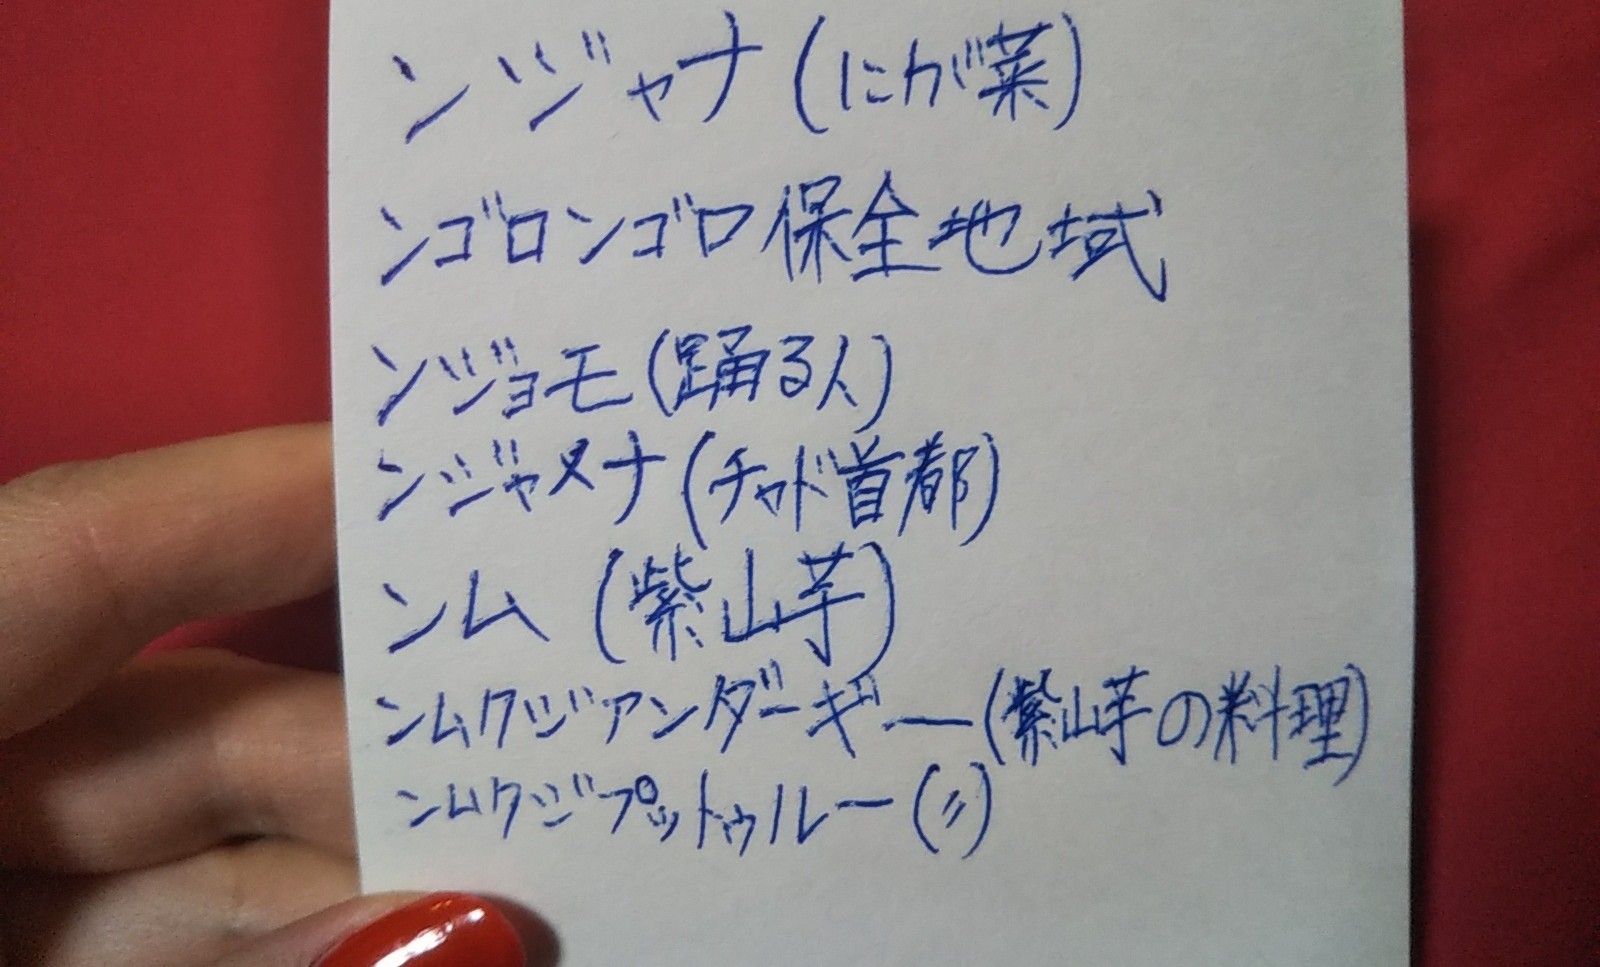 ンジャナ(にが菜)
ンゴロンゴロ保全地域
ンジョモ(踊る人)
ンジャメナ(チャド首都)
ンム(紫山芋)
ンムクジアンダーギー(紫山芋の料理)
ンムクジプットゥルー(〃)